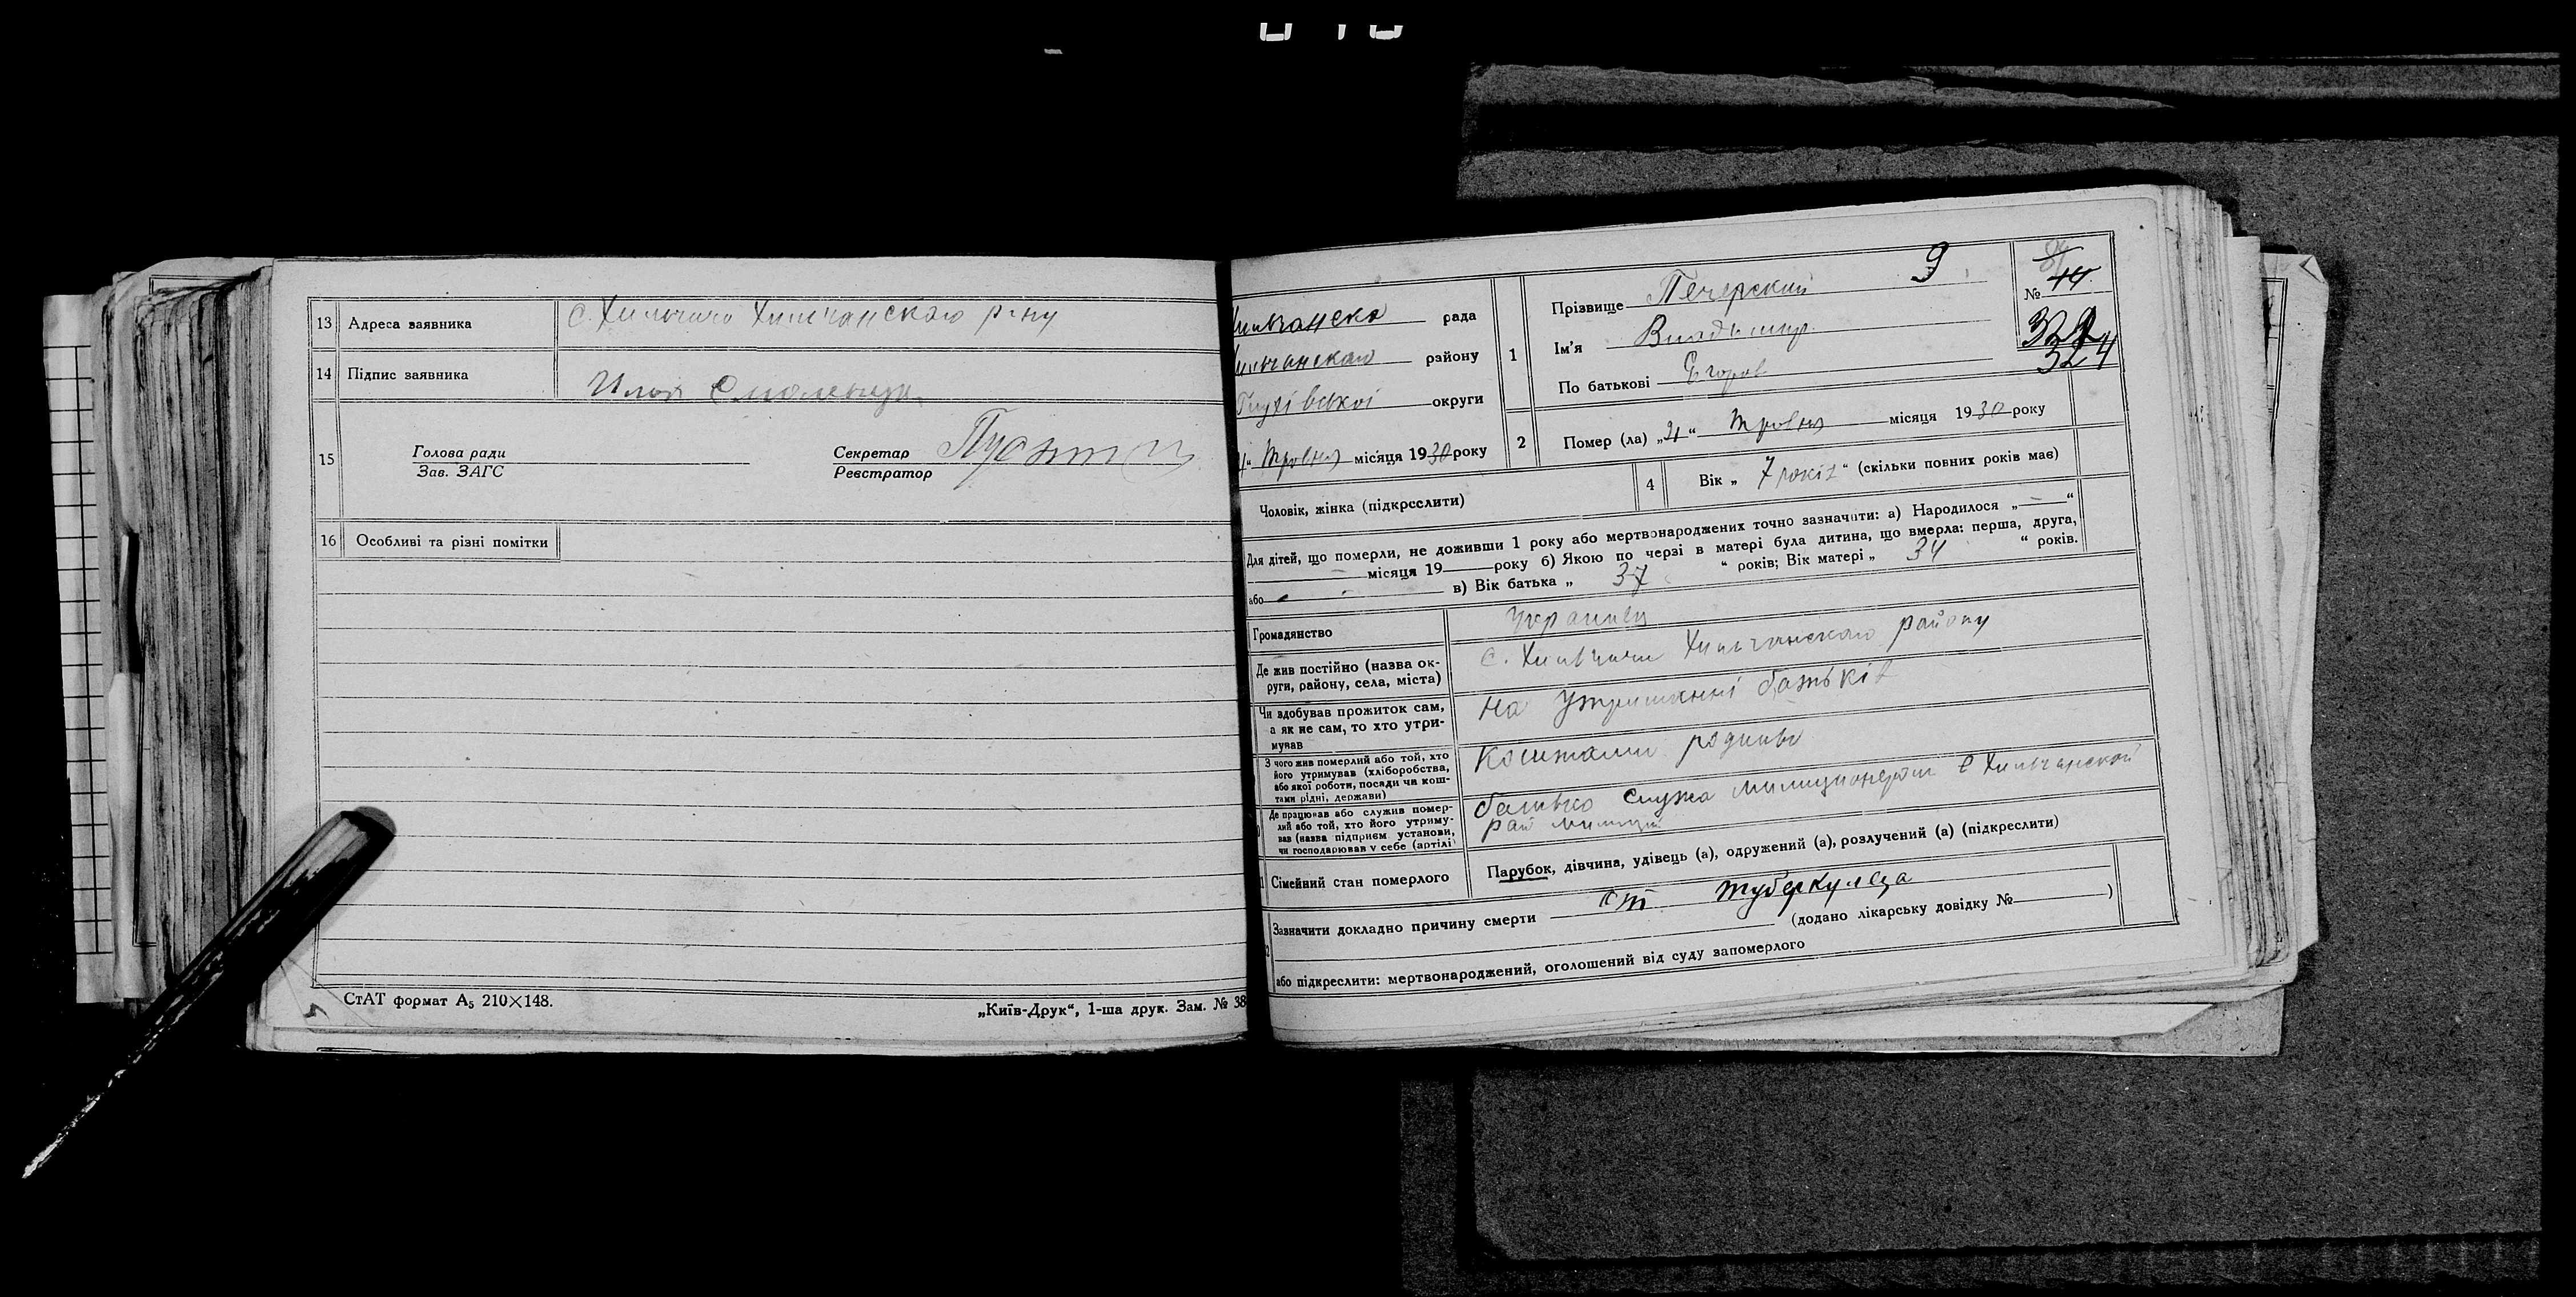 13 Адреса заявника с. Хильчичи Хильчанскаго р-ну
14 Підпис заявника
15 Голова ради
Зав. ЗАГС
Секретар
Реєстратор
16 Особливі та різні помітки
СтАТ формат А₅ 210×148.
„Київ-Друк“, 1-ша друк. Зам. № 38
рада
району
Глухівської округи
“ Травня місяця 1930 року
1
Прізвище Печерский 9
Ім'я Владымир
По батькові Егоров
№ 14
324
2 Помер (ла) „21“ Травня місяця 1930 року
Чоловік, жінка (підкреслити)
4 Вік „ 7 років “ (скільки повних років має)
Для дітей, що померли, не доживши 1 року або мертвонароджених точно зазначити: а) Народилося „—“
— місяця 19— року б) Якою по черзі в матері була дитина, що вмерла: перша, друга,
або — в) Вік батька „ 37 “ років; Вік матері „ 34 “ років.
Громадянство Украинец
Де жив постійно (назва ок-
руги, району, села, міста)
с. Хильчичи Хильчанскаго району
Чи здобував прожиток сам,
а як не сам, то хто утри-
мував
на утриманні батьків
З чого жив померлий або той, хто
його утримував (хліборобства,
або якої роботи, посади чи кош-
тами рідні, держави)
Коштами родины
Де працював або служив помер-
лий або той, хто його утриму-
вав (назва підприєм установи,
чи господарював у себе (артілі)
батько служа милиционером в Хильчанской
рай милиции
Сімейний стан померлого
Парубок, дівчина, удівець (а), одружений (а), розлучений (а) (підкреслити)
Зазначити докладно причину смерти от туберкулеза
(додано лікарську довідку № )
або підкреслити: мертвонароджений, оголошений від суду запомерлого